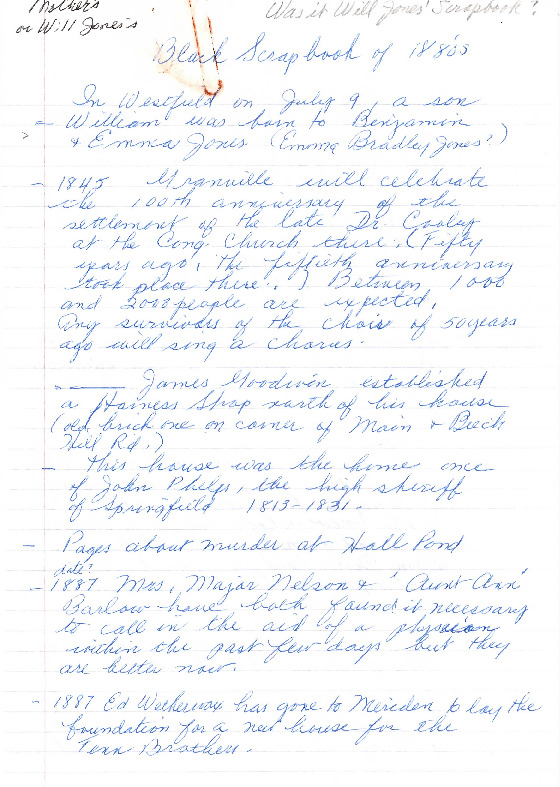 Mother's
or Will Jones's
Was it Will Jones' Scrapbook?
Black Scrapbook of 1880s
In Westfield on July 9, a son
William was born to Benjamin
& Emma Jones (Emma Bradley Jones?)
- 1845 Granville will celebrate
the 100th anniversary of the
settlement of the late Dr. Cooley
at the Cong. Church there. (Fifty
years ago, the fiftieth anniversary
took place there.) Between 1000
and 2000 people are expected.
Any survivors of the choir of 50 years
ago will sing a chorus.
- ______ James Goodwin established
a Harness Shop north of his house
(old brick one on corner of Main & Beech
Hill Rd.)
- This house was the home once
of John Phelps, the high sheriff
of Springfield 1813-1831.
- Pages about murder at Hall Pond
date?
- 1887 Mrs. Major Nelson & "Aunt Ann"
Barlow have both found it necessary
to call in the aid of a physician
within the past few days but they
are better now.
- 1887 Ed Wetherwax has gone to Meriden to lay the
foundation for a new house for the
Tenn Brothers.